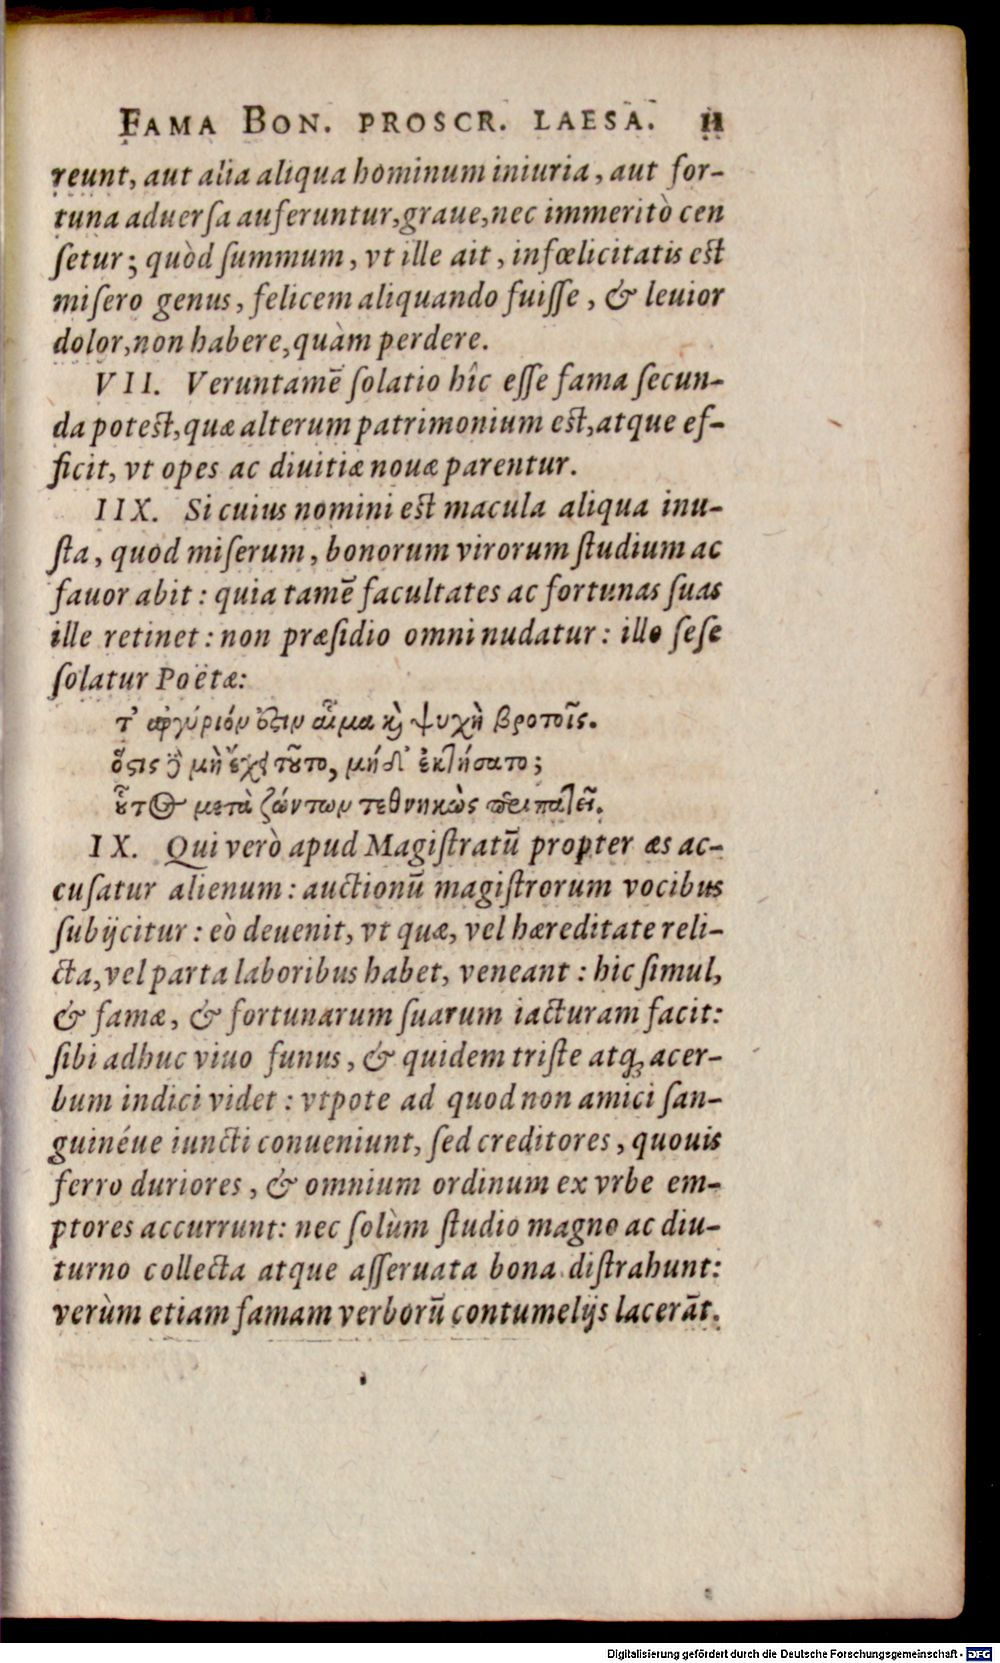 FAMA BON. PROSCR. LAESA. 11
reunt, aut alia aliqua hominum iniuria, aut for-
tuna aduerſa auferuntur, graue, nec immeritò cen
ſetur; quòd ſummum, vt ille ait, infœlicitatis eſt
miſero genus, felicem aliquando fuiſſe, & leuior
dolor, non habere, quàm perdere.
VII. Veruntamē ſolatio hîc eſſe fama ſecun-
da poteſt, quæ alterum patrimonium eſt, atque ef-
ficit, vt opes ac diuitiæ nouæ parentur.
IIX. Si cuius nomini eſt macula aliqua inu-
ſta, quod miſerum, bonorum virorum ſtudium ac
fauor abit: quia tamē facultates ac fortunas ſuas
ille retinet: non præſidio omni nudatur: illo ſeſe
ſolatur Poëtæ:
τ' ἀργύριόν ὅςιν αἷμα κ̀ ψυχὴ βροτοῖς.
ὅςις ὃ μὴ ἔχει τοῦτο, μήδ' ἐκτήσατο;
οὗτος μετὰ ζώντων τεθνηκὼς περιπατεῖ.
IX. Qui verò apud Magiſtratū propter æs ac-
cuſatur alienum: auctionū magiſtrorum vocibus
ſubijcitur: eò deuenit, vt quæ, vel hæreditate reli-
cta, vel parta laboribus habet, veneant: hic ſimul,
& famæ, & fortunarum ſuarum iacturam facit:
ſibi adhuc viuo funus, & quidem triſte atq; acer-
bum indici videt: vtpote ad quod non amici ſan-
guinéue iuncti conueniunt, ſed creditores, quouis
ferro duriores, & omnium ordinum ex vrbe em-
ptores accurrunt: nec ſolùm ſtudio magno ac diu-
turno collecta atque aſſeruata bona diſtrahunt:
verùm etiam famam verborū contumelijs lacerāt.
Digitalisierung gefördert durch die Deutsche Forschungsgemeinschaft - DFG